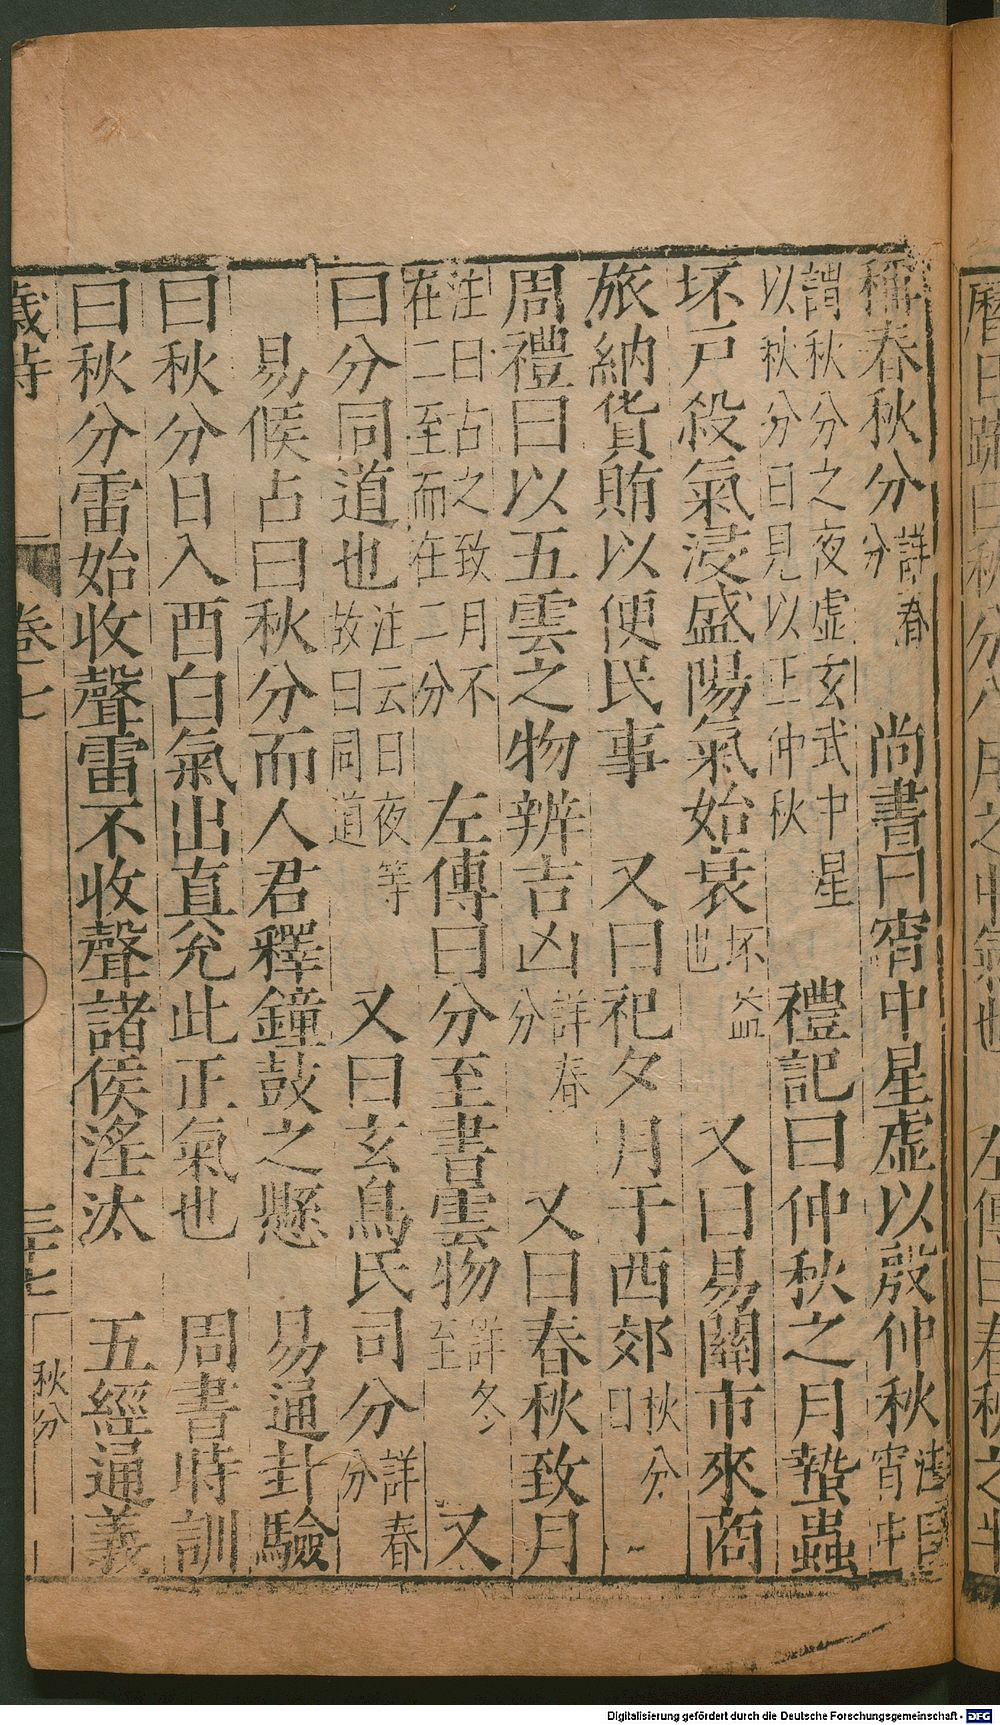 曆日疏曰秋分八月之中氣也 左傳曰春秋之半
稱春秋分詳春分 尚書曰宵中星虛以殷仲秋注曰宵中
謂秋分之夜虛玄武中星以秋分日見以正仲秋 禮記曰仲秋之月蟄蟲
坏戶殺氣浸盛陽氣始衰坏益也 又曰易關市來商
旅納貨賄以便民事 又曰祀夕月于西郊秋分日
周禮曰以五雲之物辨吉凶詳春分 又曰春秋致月
注曰占之致月不在二至而在二分 左傳曰分至書雲物詳冬至 又
曰分同道也注云日夜等故曰同道 又曰玄鳥氏司分詳春分
易候占曰秋分而人君釋鐘鼓之懸 易通卦驗
曰秋分日入酉白氣出直兊此正氣也 周書時訓
曰秋分雷始收聲雷不收聲諸侯淫汰 五經通義
歲時 卷七 三十七 秋分
Digitalisierung gefördert durch die Deutsche Forschungsgemeinschaft - DFG